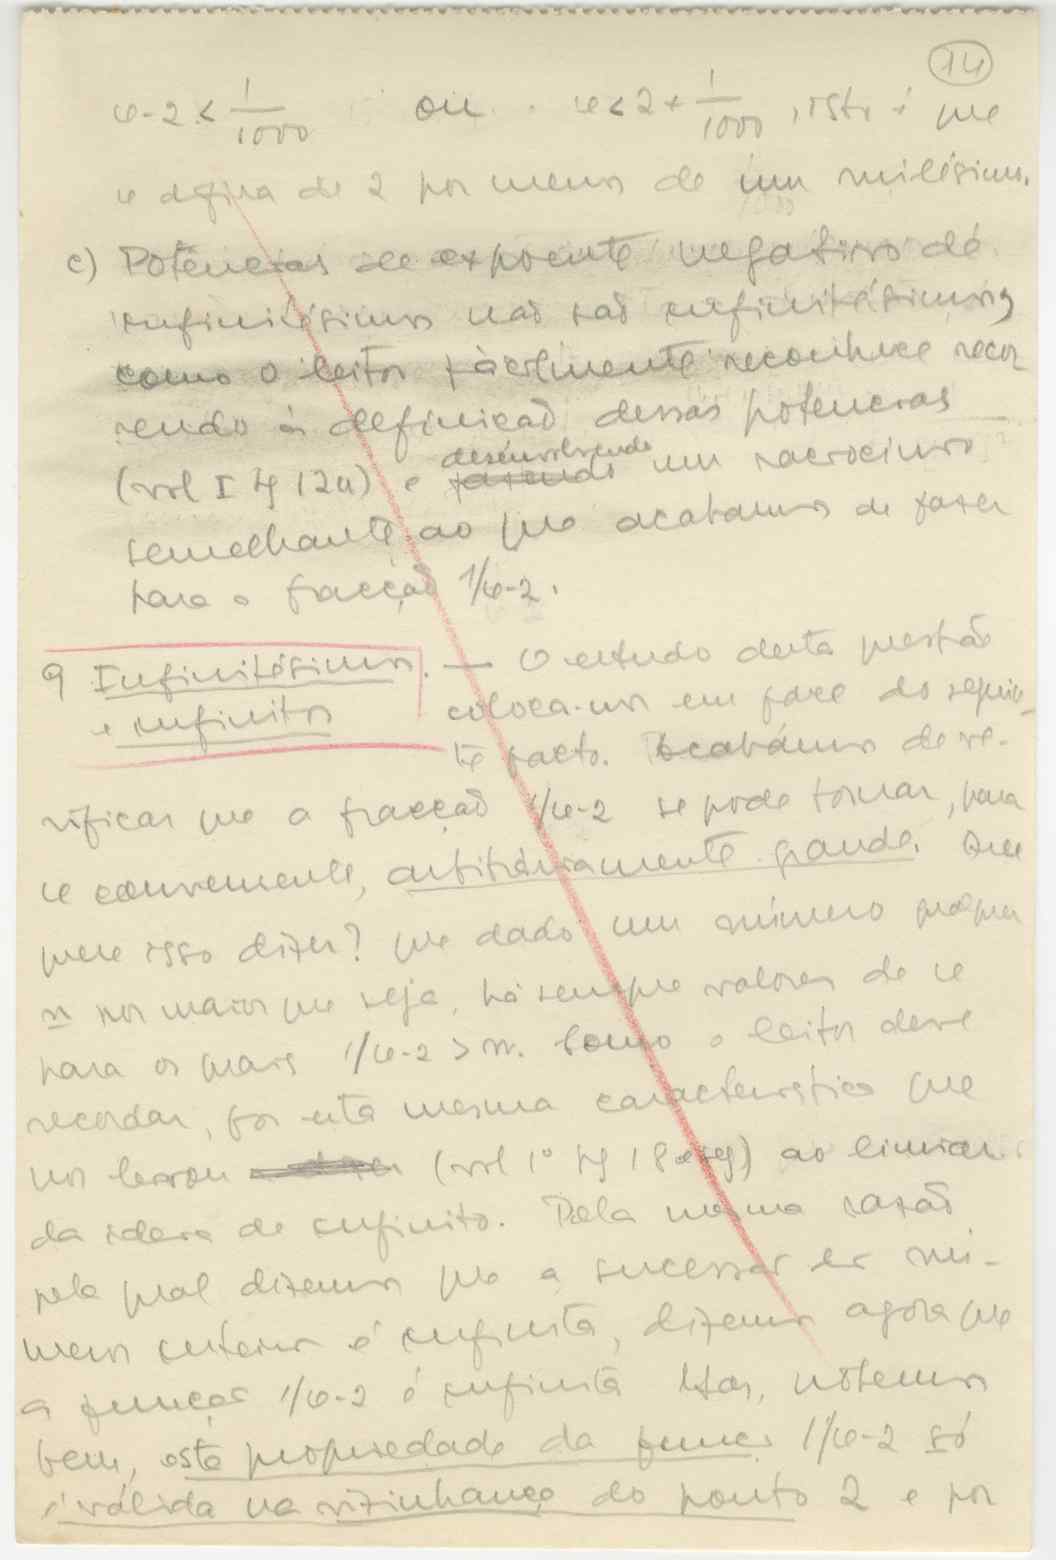 14
u-2 < 1/1000 ou u < 2 + 1/1000, isto é que
u difira de 2 por menos de um milésimo.
c) Potencias de expoente negativo de
infinitésimos não são infinitésimos,
como o leitor fàcilmente reconhece recor
rendo à definição dessas potencias
(vol I pg 124) e desenvolvendo um raciocinio
semelhante ao que acabamos de fazer
para a fracção 1/u-2.
9 Infinitésimos — O estudo desta questão
e infinitos coloca-nos em face do seguin-
te facto. Acabámos de ve-
rificar que a fracção 1/u-2 se pode tornar, para
u conveniente, arbitràriamente grande. Que
quere isso dizer? que dado um número qualquer
n por maior que seja, há sempre valores de u
para os quais 1/u-2 > n. Como o leitor deve
recordar, foi esta mesma caracteristica que
nos levou (vol 1º pg 18 e sg) ao limiar
da ideia de infinito. Pela mesma razão
pela qual dizemos que a sucessão dos nú-
meros inteiros é infinita, dizemos agora que
a função 1/u-2 é infinita Mas, notemos
bem, esta propriedade da função 1/u-2 só
é válida na vizinhança do ponto 2 e por